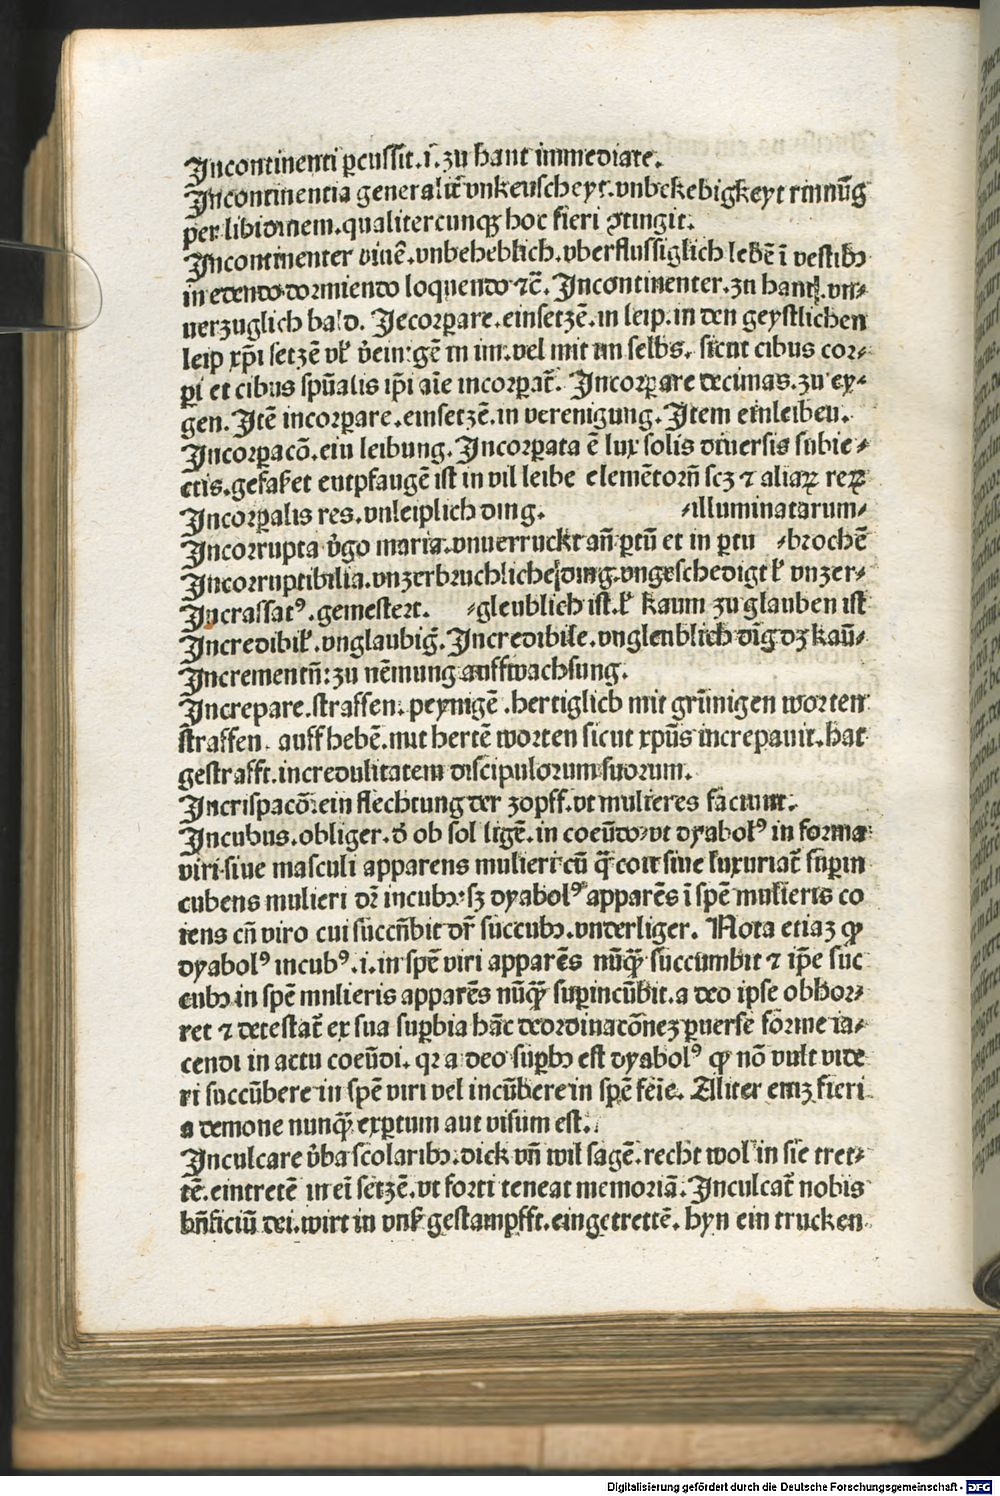 Incontinenti ꝑcussit.i.zu hant immediate.
Incontinentia generalit̃ vnkeuscheyt.vnbekebigkeyt rinnũg
per libidinem.qualitercunqꝫ hoc fieri ꝯtingit.
Incontinenter viuẽ.vnbeheblich.vberflussiglich lebẽ ĩ vestibꝫ
in edendo dormiendo loquendo ⁊c̃. Incontinenter.zu hant.vn⸗
uerzuglich bald. Iecorꝑare.einsetzẽ.in leip.in den geystlichen
leip xp̃i setzẽ vel im.vel mit im selbs. sicut cibus cor⸗
ꝑi et cibus spũalis ip̃i aĩe incorꝑat̃. Incorꝑare decimas.zu ey⸗
gen. Itẽ incorꝑare.einsetzẽ.in verenigung. Item einleiben.
Incorꝑacõ.ein leibung. Incorꝑata ẽ lux solis diuersis subie⸗
ctis.gefasset entpfangẽ ist in vil leibe elemẽtorũ scꝫ ⁊ aliaꝝ reꝝ
Incorꝑalis res.vnleiplich ding. ⸗illuminatarum⸗
Incorrupta v̓go maria.vnuerruckt añ ꝑtũ et in ꝑtu ⸗brochẽ
Incorruptibilia.vnzerbruchliche ding.vngeschedigt vnzer⸗
Incrassatꝰ.gemestert. ⸗gleublich ist. kaum zu glauben ist
Incredibil̓.vnglaubig̃. Incredibile.vngleublich dĩg dꝫ kaũ⸗
Incrementũ:zu nẽmung auffwachsung.
Increpare.straffen.peynigẽ.hertiglich mit grũnigen worten
straffen. auff hebẽ.mit hertẽ worten sicut xpũs increpauit.hat
gestrafft.incredulitatem discipulorum suorum.
Incrispacõ.ein flechtung der zopff.vt mulieres faciunt.
Incubus.obliger.d̓ ob sol ligẽ.in coeũdo vt dyabolꝰ in forma
viri siue masculi apparens mulieri cũ q̃ coit siue luxuriat̃ suꝑin
cubens mulieri dr̃ incubꝫ sꝫ dyabolꝰ apparẽs ĩ spẽ mulieris co
iens cũ viro cui succũbit dr̃ succubꝫ.vnderliger. Nota etiaꝫ ꝙ
dyabolꝰ incubꝰ.i.in spẽ viri apparẽs nũqꝫ̃ succumbit ⁊ ip̃e suc
cubꝫ in spẽ mulieris apparẽs nũqꝫ̃ suꝑincũbit.a deo ipse obhor⸗
ret ⁊ detestat̃ ex sua suꝑbia hãc deordinacõneꝫ ꝑuerse forme ia⸗
cendi in actu coeũdi. qꝛ a deo suꝑbꝫ est dyabolꝰ ꝙ nõ vult vide
ri succũbere in spẽ viri vel incũbere in spẽ feĩe. Aliter eniꝫ fieri
a demone nunqꝫ̃ exꝑtum aut visum est.
Inculcare v̓ba scolaribꝫ.dick vñ wil sagẽ.recht wol in sie tret⸗
tẽ.eintretẽ in eĩ setzẽ.vt forti teneat memoriã. Inculcat̃ nobis
bñficiũ dei.wirt in vns gestampfft.eingetrettẽ. hyn ein trucken
Digitalisierung gefördert durch die Deutsche Forschungsgemeinschaft - DFG